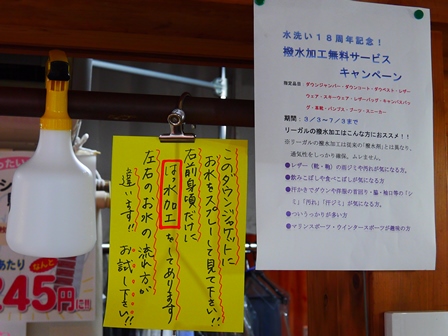 水洗い18周年記念！
撥水加工無料サービス
キャンペーン
限定品目：ダウンジャンパー・ダウンコート・ダウンベスト・レザー
ウェア・スキーウェア・レザーバッグ・キャンバスバッ
グ・革靴・パンプス・ブーツ・スニーカー
期間：３/３～７/３まで
リーガルの撥水加工はこんな方におススメ！！
※リーガルの撥水加工は従来の「撥水剤」とは異なり、
通気性をしっかり確保。ムレません。
●レザー（靴・鞄）の雨ジミや汚れが気になる方。
●飲みこぼしや食べこぼしが気になる方。
●汗かきでダウンや洋服の首回り・脇・袖口等の「シ
ミ」「汚れ」「汗ジミ」が気になる方。
●ついうっかりが多い方
●マリンスポーツ・ウインタースポーツが趣味の方
このダウンジャケットに
お水をスプレーして見て下さい!!
右前身頃だけに
はっ水加工をしてあります!
左右のお水の流れ方が
違います!! お試し下さい!!
あたり
なんと
245円